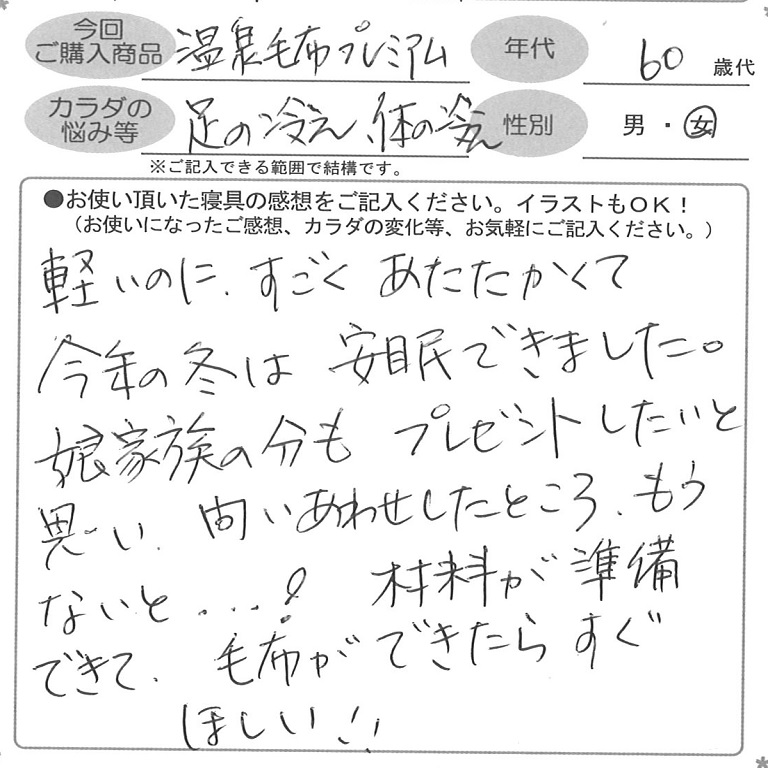 今回
ご購入商品
温泉毛布プレミアム
年代
60 歳代
カラダの
悩み等
足の冷え、体の冷え
性別
男・女
※ご記入できる範囲で結構です。
●お使い頂いた寝具の感想をご記入ください。イラストもOK！
（お使いになったご感想、カラダの変化等、お気軽にご記入ください。）
軽いのに、すごく あたたかくて
今年の冬は 安眠できました。
娘家族の分も プレゼントしたいと
思い、問いあわせしたところ、もう
ないと...！ 材料が準備
できて、毛布ができたらすぐ
ほしい!!